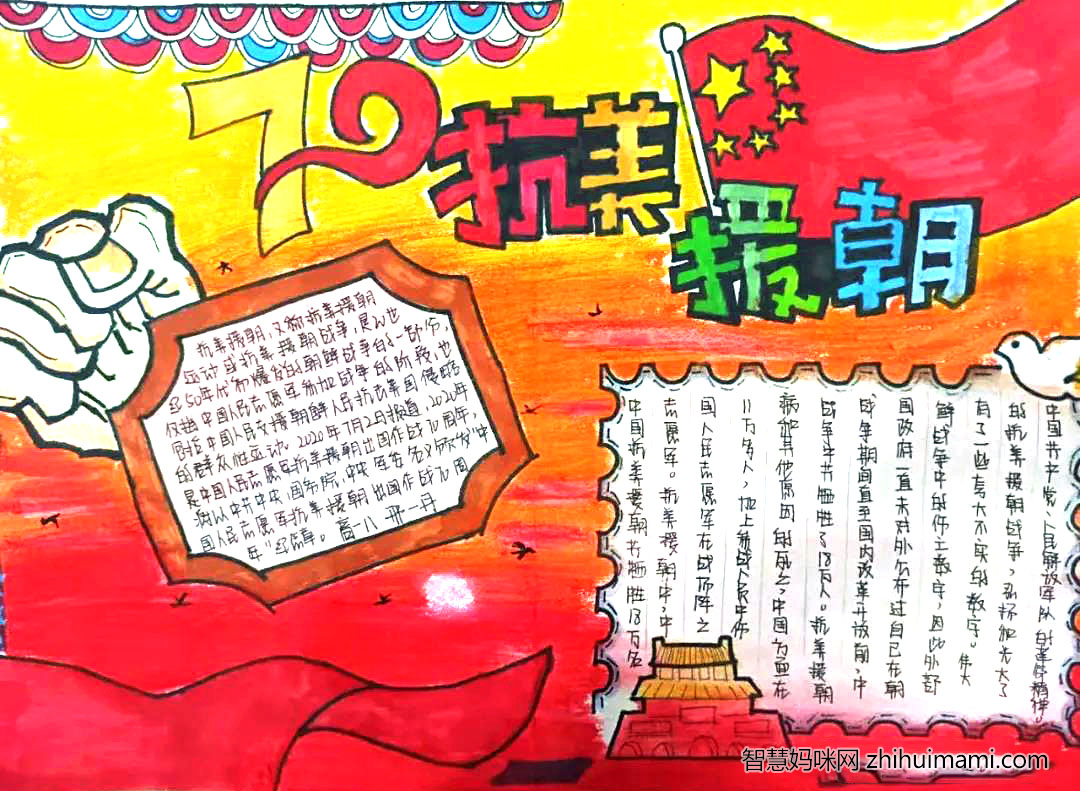 70
抗美
援朝
抗美援朝,又称抗美援朝
运动或抗美援朝战争,是
纪50年代初爆发的朝鲜战争的一部分,
仅指中国人民志愿军参加战争的阶段,也
包括中国人民支援朝鲜人民抗击美国侵略
的群众性运动。2020年7月2日报道,2020年
是中国人民志愿军抗美援朝出国作战70周年,
以中共中央、国务院、中央军委名义颁发"中
国人民志愿军抗美援朝出国作战70周
年"纪念章。高一八 邢一丹
中国共产党、人民解放军队的革命精神。
的抗美援朝战争,弘扬和光大了
有了一些夸大不实的数字。伟大
鲜战争中的伤亡数字,因此外部
国政府一直未对外公布过自己在朝
战争期间直至国内改革开放前,中
战争中共牺牲了18万人。抗美援朝
病和其他原因的死亡,中国方面在
11万多人,加上参战人员中伤
国人民志愿军在战场阵亡
志愿军。抗美援朝中,中
中国抗美援朝共牺牲18万名
智慧妈咪网 zhihuimami.com